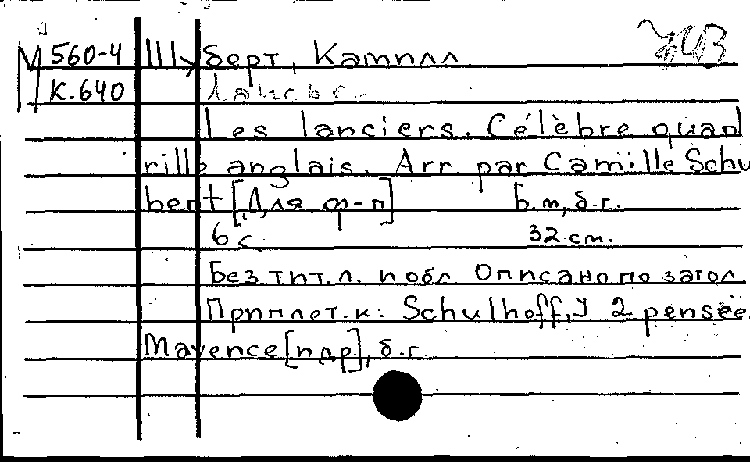 М 560-4 Шуберт, Камилл
К.640
Les lanciers. Célèbre quad
rille anglais. Arr par Camille Schu
bert [Для ф-п] Б.м, б.г.
6 с. 32 см.
Без тит.л. и обл. Описано по загол.
Приплет. к: Schulhoff, J 2 pensée.
Mayence [и др], б.г.